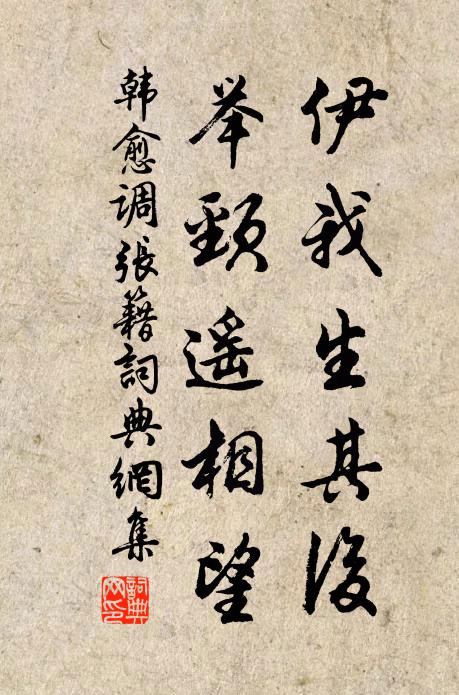 伊我生其後
举頸遥相望
韩愈调張籍詞典網集
詞典网印